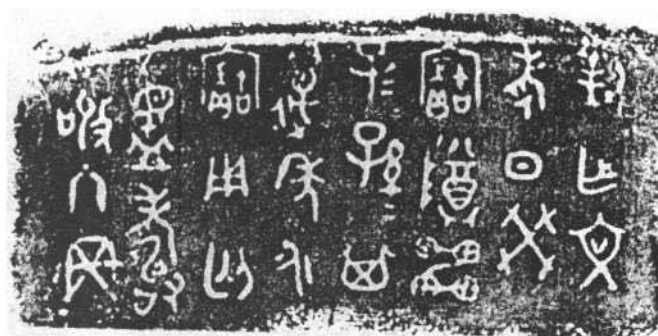 對乍文
考日癸
寶尊罍
子＝孫＝其
萬年永
寶用匄
眉壽
敬冬